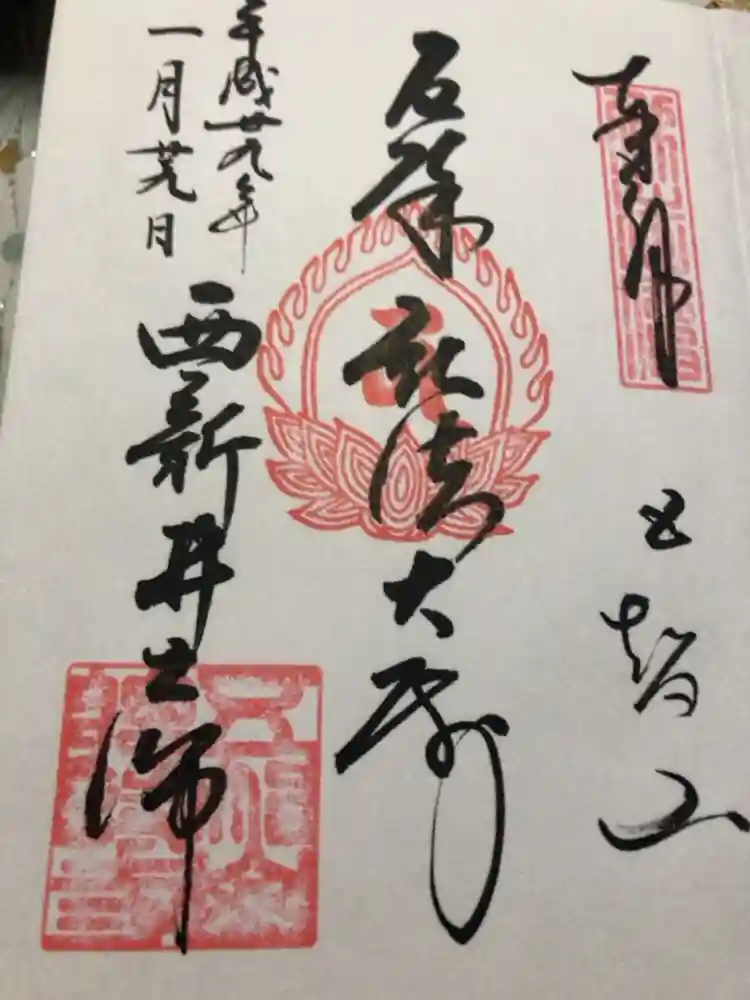 奉拝
五智山
厄除 弘法大師
平成廿九年
一月廿九日
西新井大師